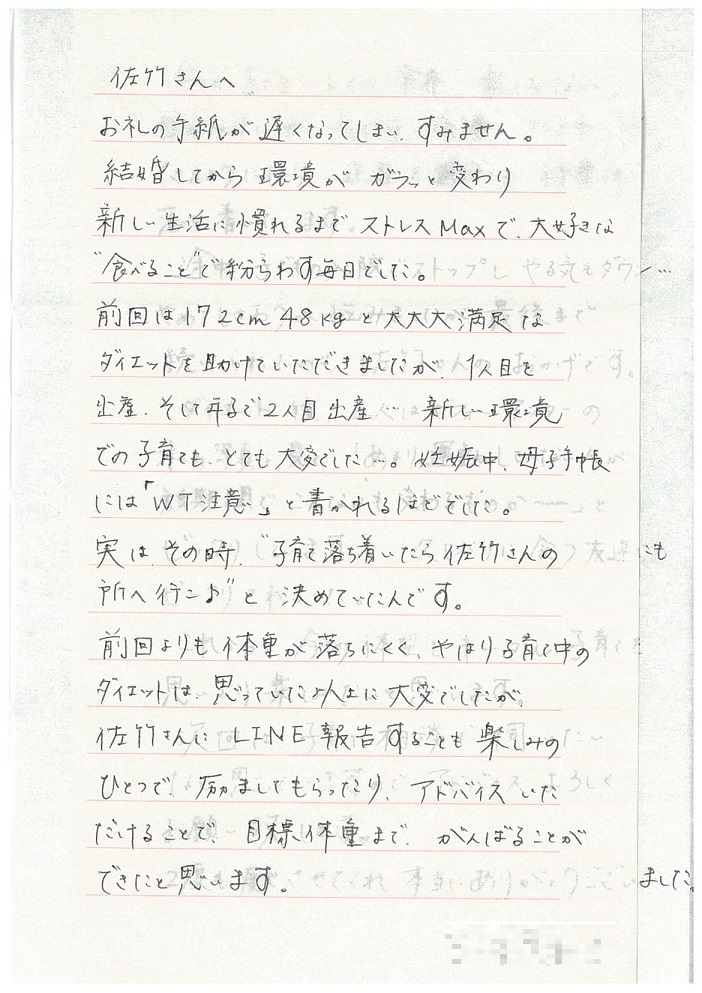 佐竹さんへ
お礼の手紙が遅くなってしまい、すみません。
結婚してから環境がガラッと変わり
新しい生活に慣れるまでストレスMaxで、大好きな
"食べること"で紛らわす毎日でした。
前回は172cm 48kgと大大大満足な
ダイエットを助けていただきましたが、1人目を
出産、そして年子で2人目出産… 新しい環境
での子育ても、とても大変でした…。妊娠中、母子手帳
には「WT注意」と書かれるほどでした。
実は、その時、"子育て落ち着いたら佐竹さんの
所へ行こ♪"と決めていたんです。
前回よりも体重が落ちにくく、やはり子育て中の
ダイエットは、思っていた以上に大変でしたが
佐竹さんにLINE報告することも楽しみの
ひとつで、励ましてもらったり、アドバイスいた
だけることで、目標体重まで、がんばることが
できたと思います。
ました。